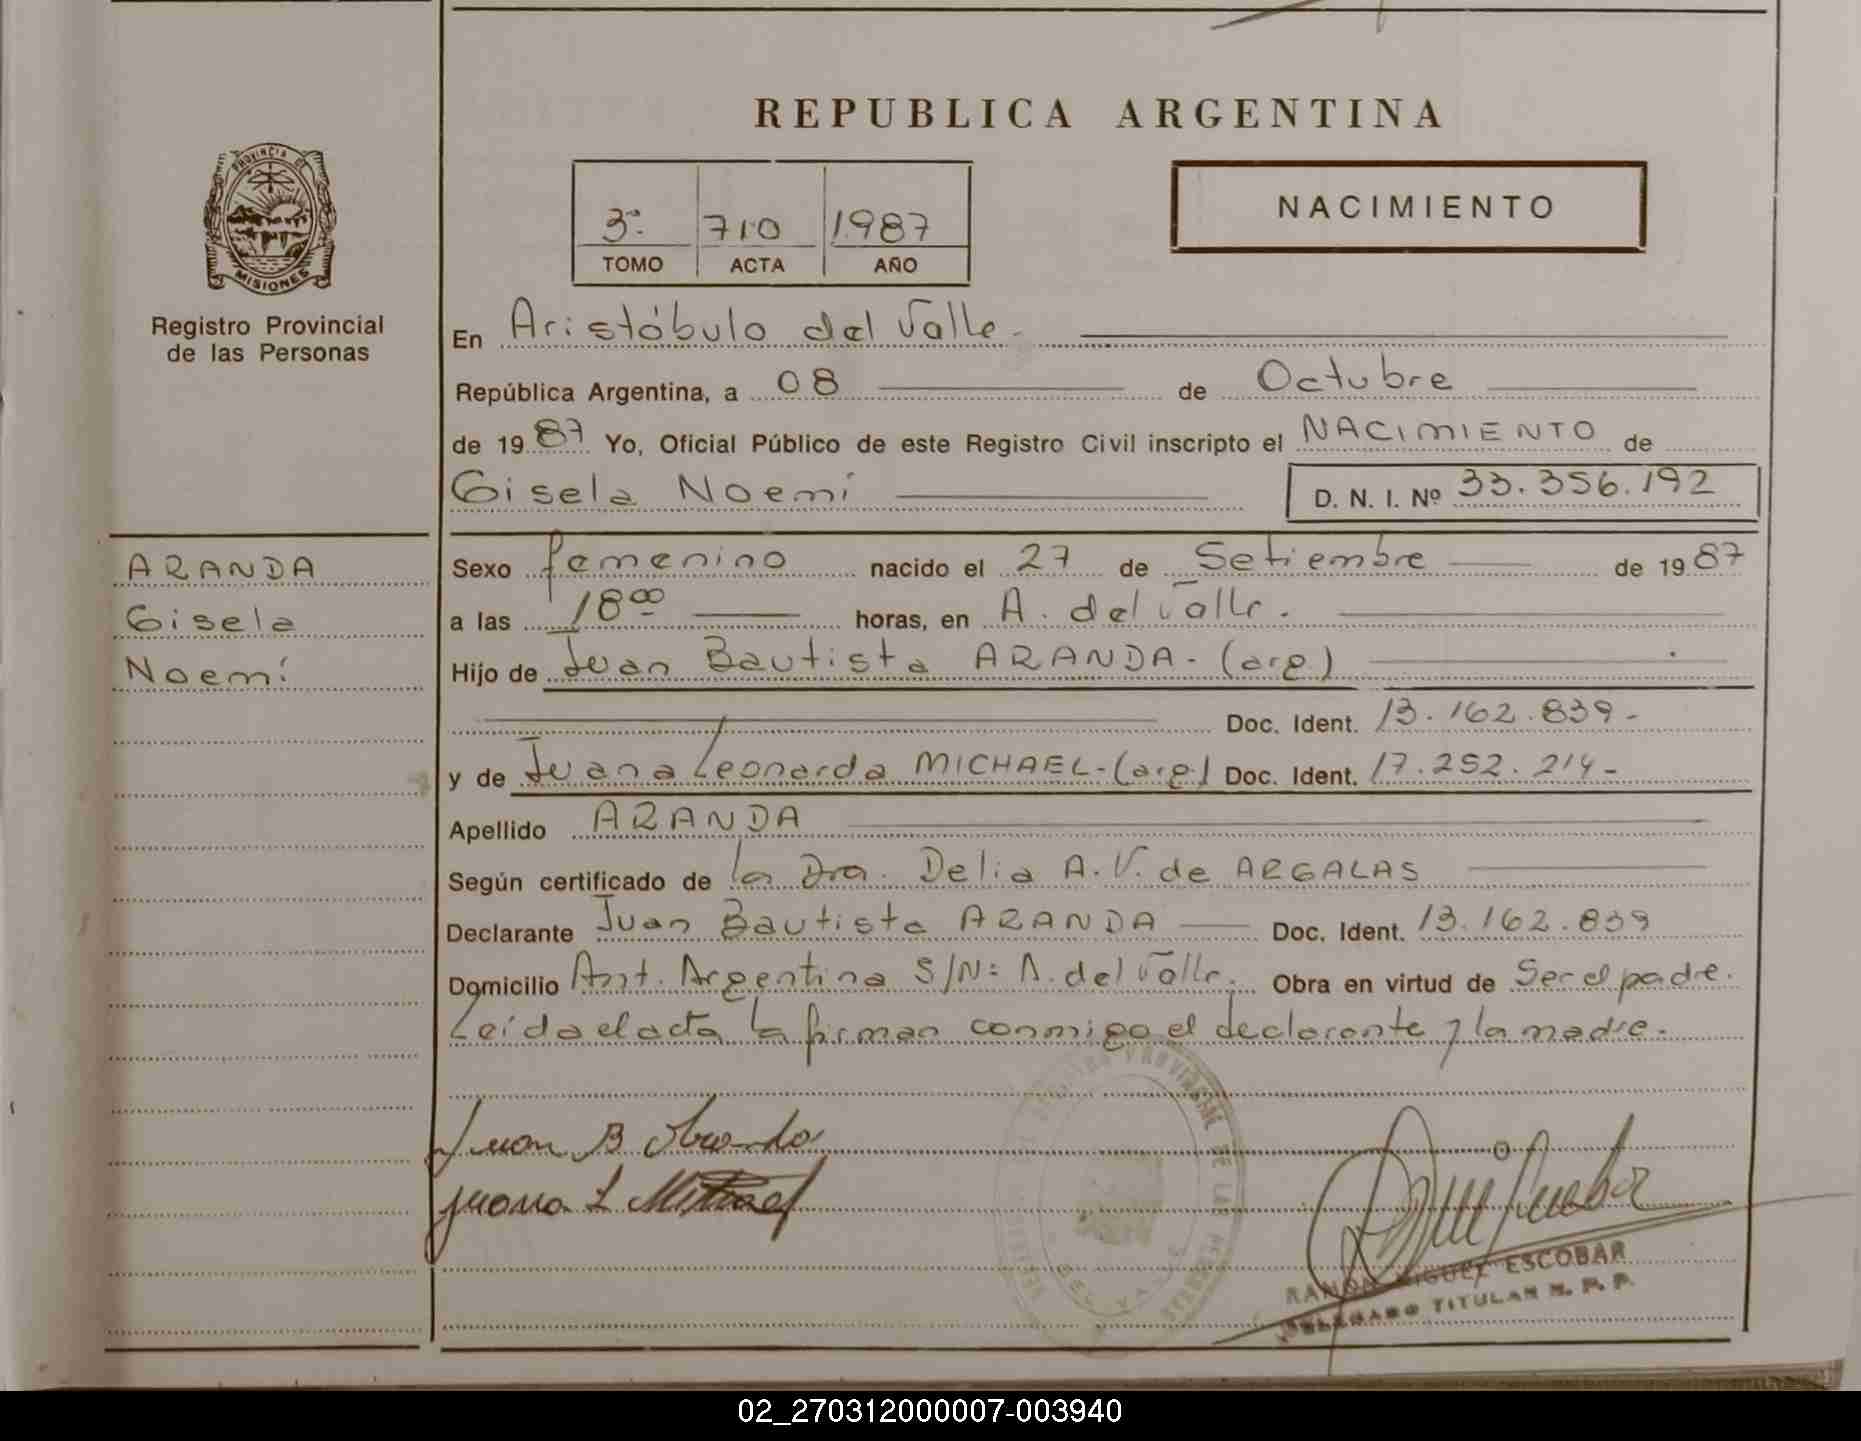 REPUBLICA ARGENTINA
PROVINCIA DE
MISIONES
Registro Provincial
de las Personas
3º 710 1987
TOMO ACTA AÑO
NACIMIENTO
En Aristóbulo del Valle.
República Argentina, a 08 de Octubre
de 1987 Yo, Oficial Público de este Registro Civil inscripto el NACIMIENTO de
Gisela Noemí D. N. I. Nº 33.356.192
ARANDA
Gisela
Noemí
Sexo femenino nacido el 27 de Setiembre de 1987
a las 18⁰⁰ horas, en A. del Valle.
Hijo de Juan Bautista ARANDA - (arg.)
Doc. Ident. 13.162.839-
y de Juana Leonarda MICHAEL - (arg.) Doc. Ident. 17.252.214-
Apellido ARANDA
Según certificado de la Dra. Delia A. V. de ARGALAS
Declarante Juan Bautista ARANDA Doc. Ident. 13.162.839
Domicilio Ant. Argentina S/N: A. del Valle. Obra en virtud de Ser el padre.
Leída el acta la firman conmigo el declarante y la madre.
Juan B Aranda
Juana L Michael
RAMON MIGUEL ESCOBAR
DELEGADO TITULAR R. P. P.
02_270312000007-003940